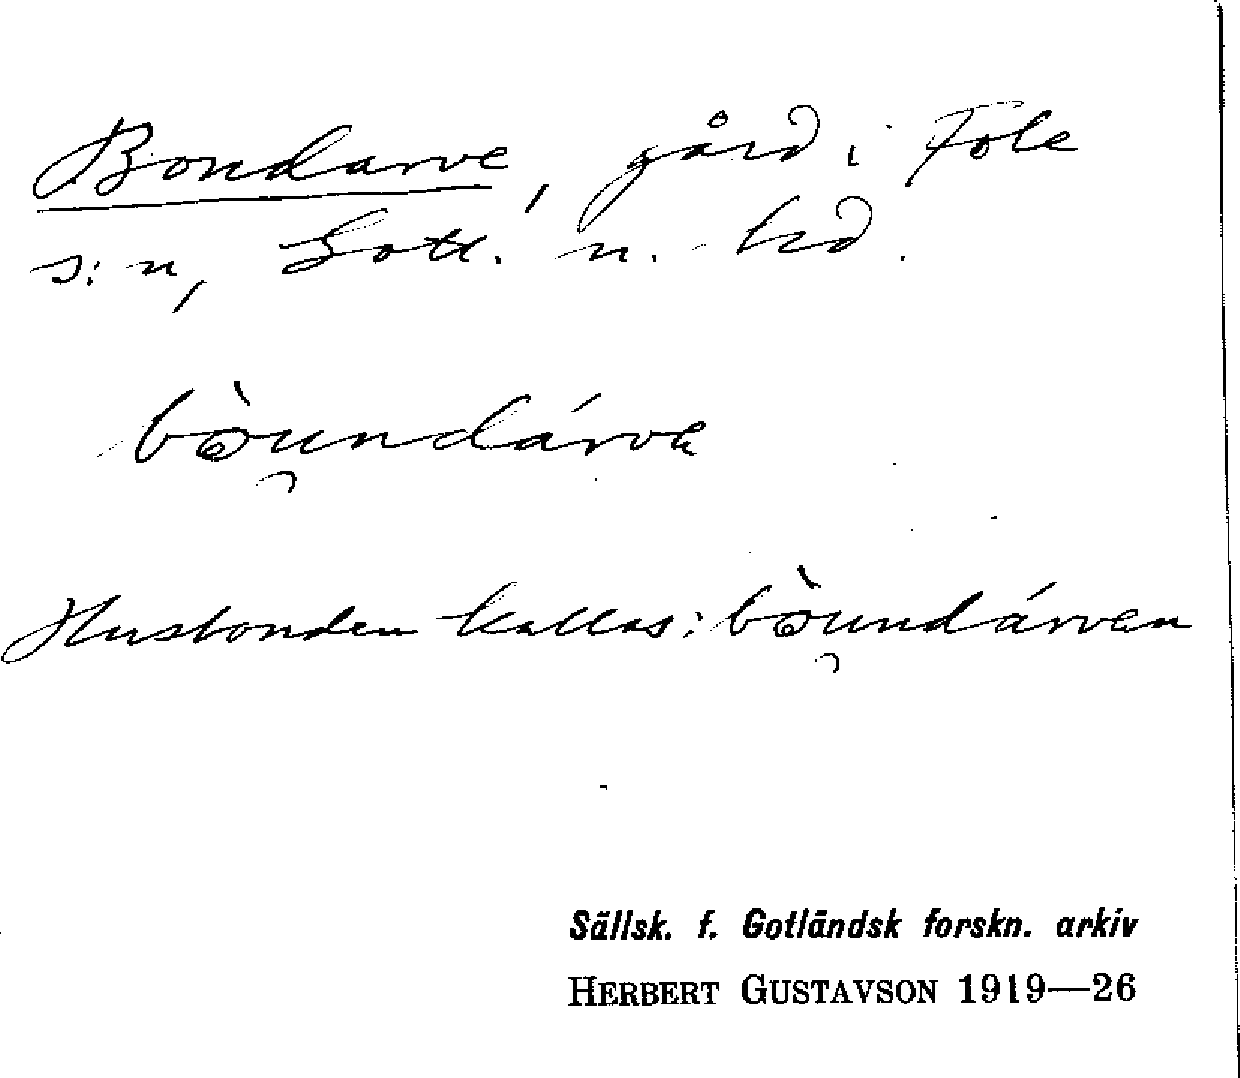 Bondarve, gård i Fole
s:n, Gotl. n. hd.
bòu̯ndárve
Husbonden kallas: bòu̯ndárven
Sällsk. f. Gotländsk forskn. arkiv
HERBERT GUSTAVSON 1919—26